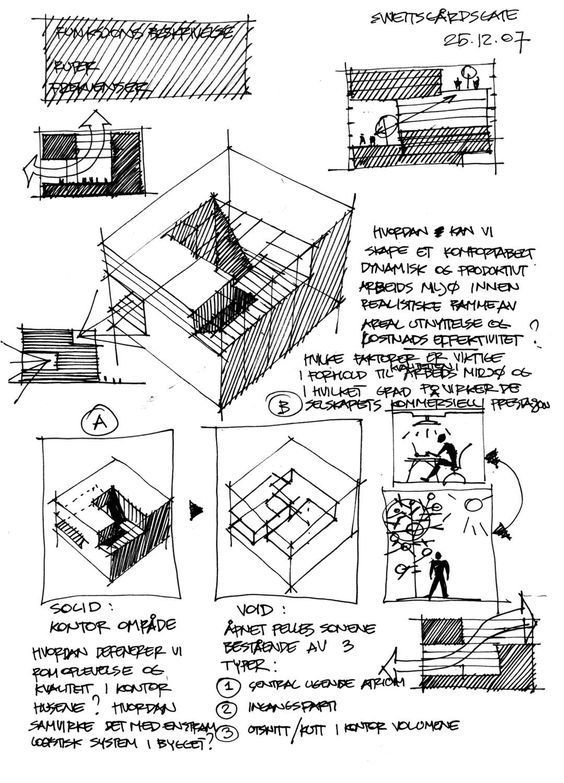 FUNKSJONS BESKRIVELSE
SWEITSGÅRDSGATE
25.12.07
FREKVENSER
HVORDAN KAN VI
SKAPE ET KOMFORTABERT
DYNAMISK OG PRODUKTIVT
ARBEIDS MILJØ INNEN
REALISTISKE RAMME AV
AREAL UTNYTTELSE OG
KOSTNADS EFFEKTIVITET ?
HVILKE FAKTORER ER VIKTIGE
KVALITETEN
I FORHOLD TIL ARBEIDS MILJØ OG
I HVILKET GRAD PÅVIRKER DE
SELSKAPETS KOMMERSIELL PRESTASJON
A
B
SOLID :
KONTOR OMRÅDE
HVORDAN DEFENERER VI
ROM OPLEVELSE OG
KVALITET I KONTOR
HUSENE ? HVORDAN
SAMVIRKE DET MED EN STRAM
LOGISTISK SYSTEM I BYGGET ?
VOID :
ÅPNET FELLES SONENE
BESTÅENDE AV 3
TYPER :
1 SENTRAL LIGENDE ATRIOM
2 INGANGSPARTI
3 UTSNITT / KUTT I KONTOR VOLUMENE